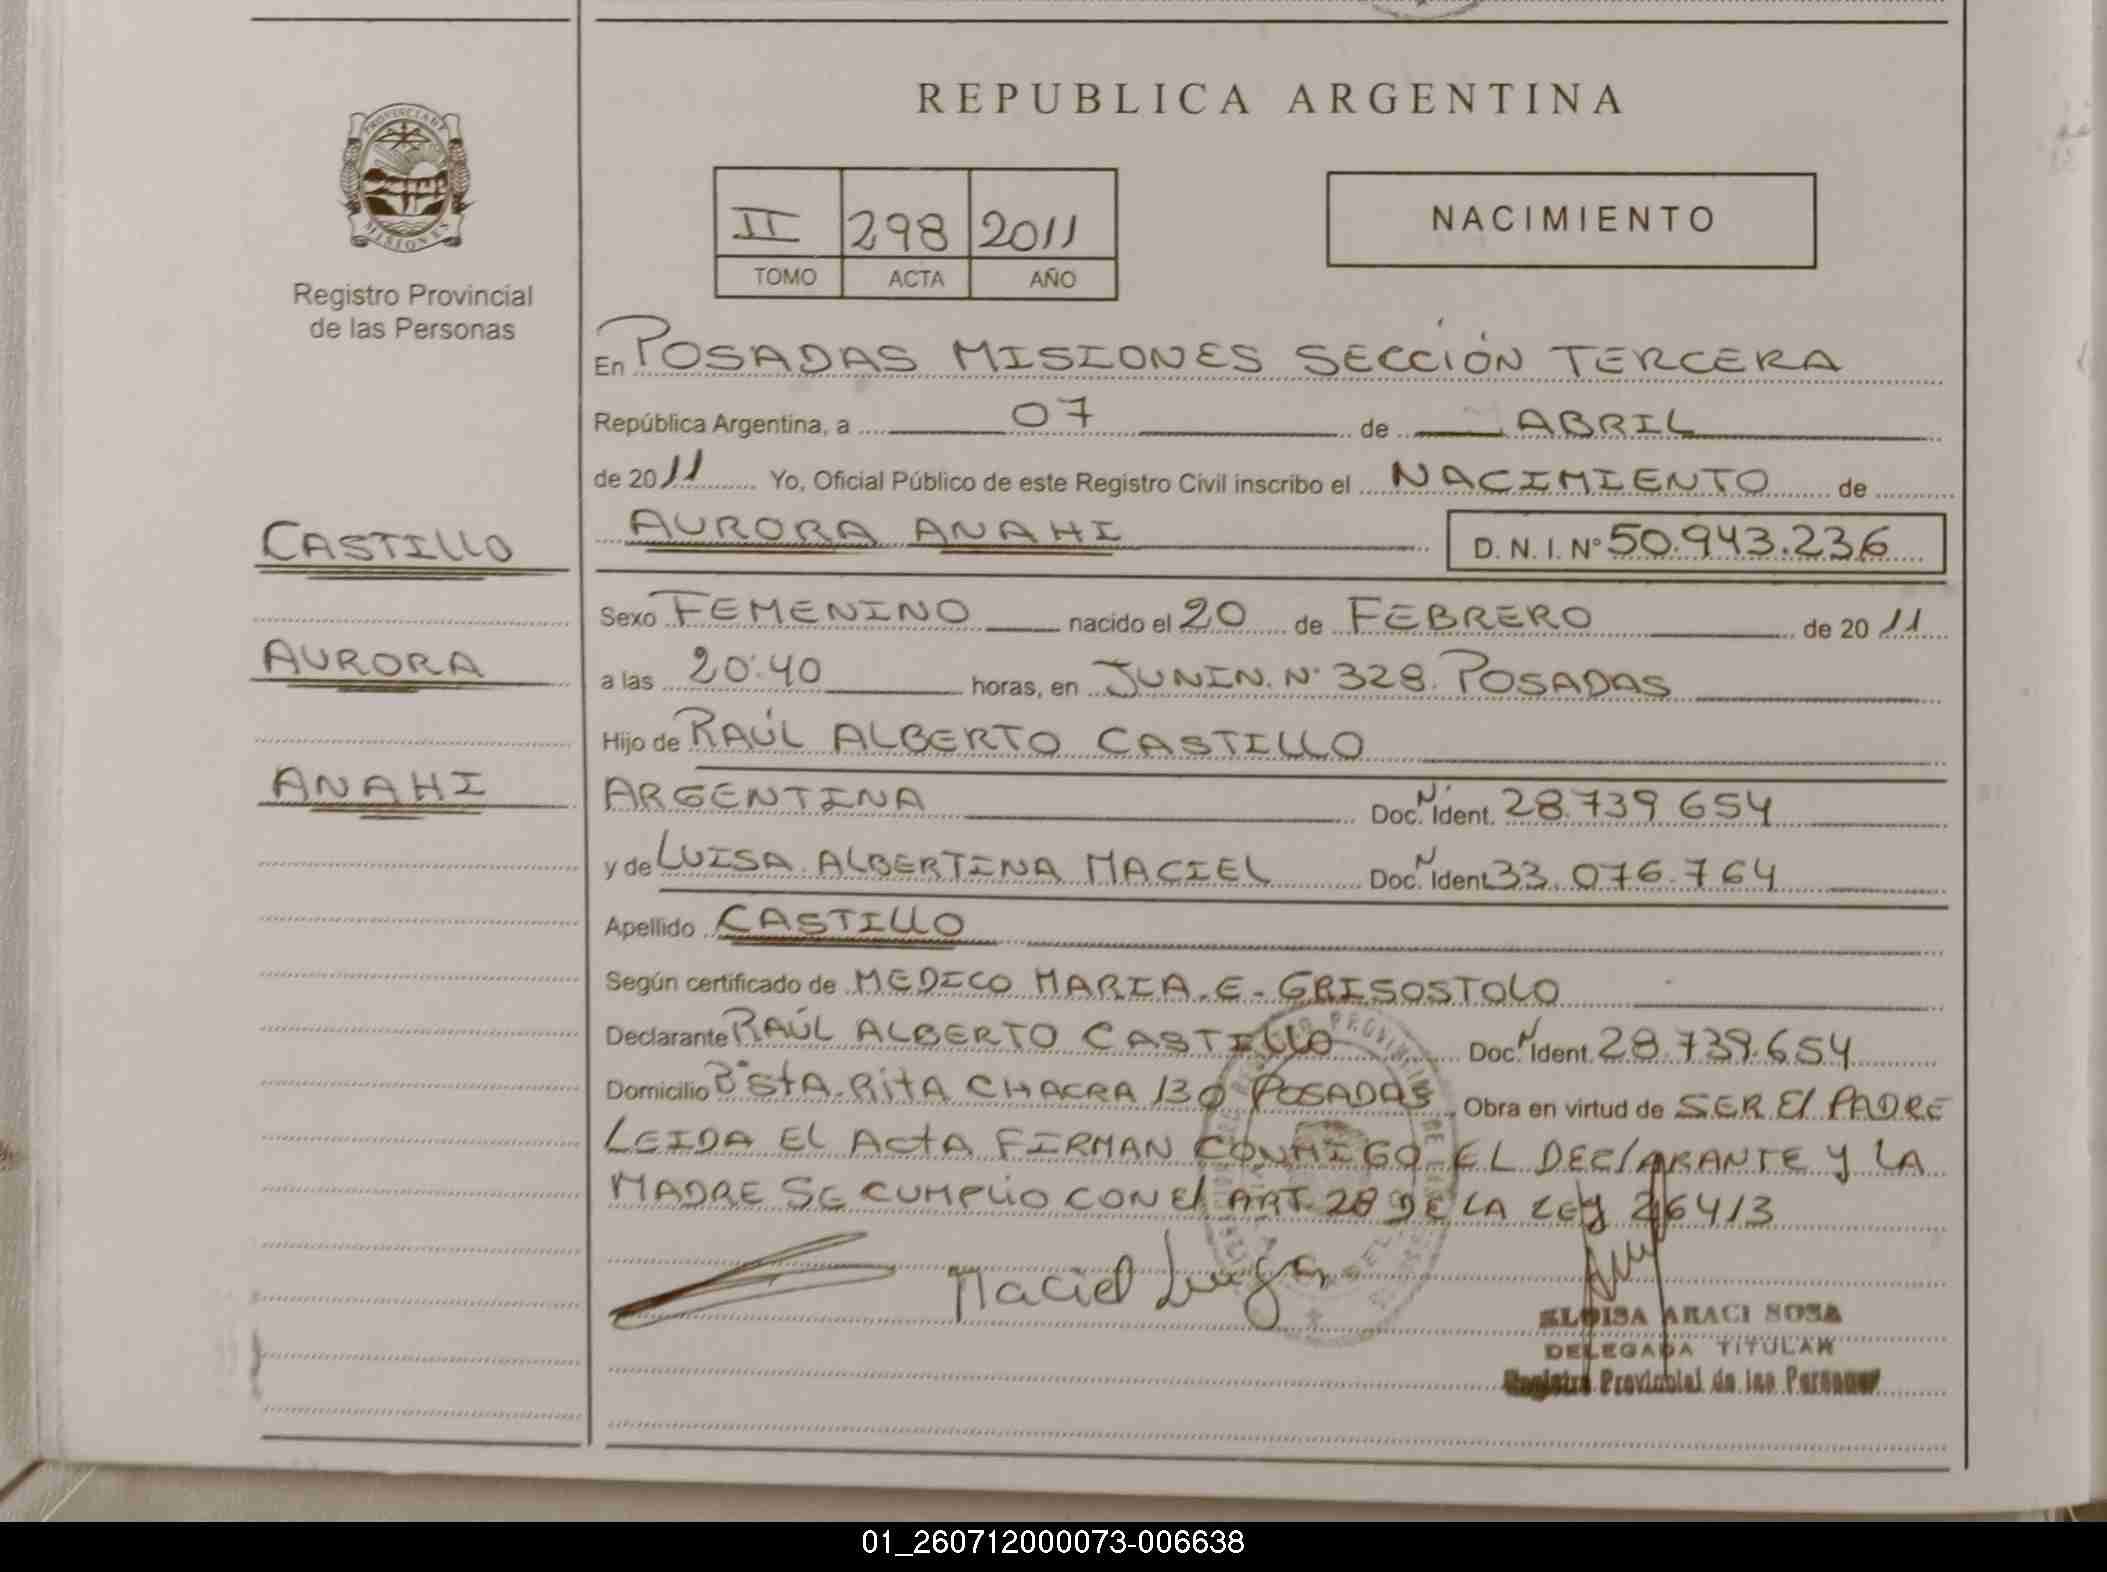 REPUBLICA ARGENTINA
PROVINCIA DE
MISIONES
Registro Provincial
de las Personas
II 298 2011
TOMO ACTA AÑO
NACIMIENTO
En POSADAS MISIONES SECCIÓN TERCERA
República Argentina, a 07 de ABRIL
de 2011 Yo, Oficial Público de este Registro Civil inscribo el NACIMIENTO de
CASTILLO
AURORA
ANAHI
AURORA ANAHI D. N. I. Nº 50.943.236
Sexo FEMENINO nacido el 20 de FEBRERO de 2011
a las 20:40 horas, en JUNIN. Nº 328. POSADAS
Hijo de RAÚL ALBERTO CASTILLO
ARGENTINA Doc. Nº Ident. 28.739.654
y de LUISA ALBERTINA MACIEL Doc. N Ident. 33.076.764
Apellido CASTILLO
Según certificado de MEDICO MARIA.E-GRISOSTOLO
Declarante RAÚL ALBERTO CASTILLO Doc. N Ident. 28.739.654
Domicilio Bº StA.RitA CHACRA 130 POSADAS Obra en virtud de SER El PADRE
LEIDA El ActA FIRMAN CONMIGO EL DEClARANTE y LA
MADRE SE CUMPLIO CON El ART. 28 DE LA LEY 26413
Maciel Luisa
ELOISA ARACI SOSA
DELEGADA TITULAR
Registro Provincial de las Personas
01_260712000073-006638